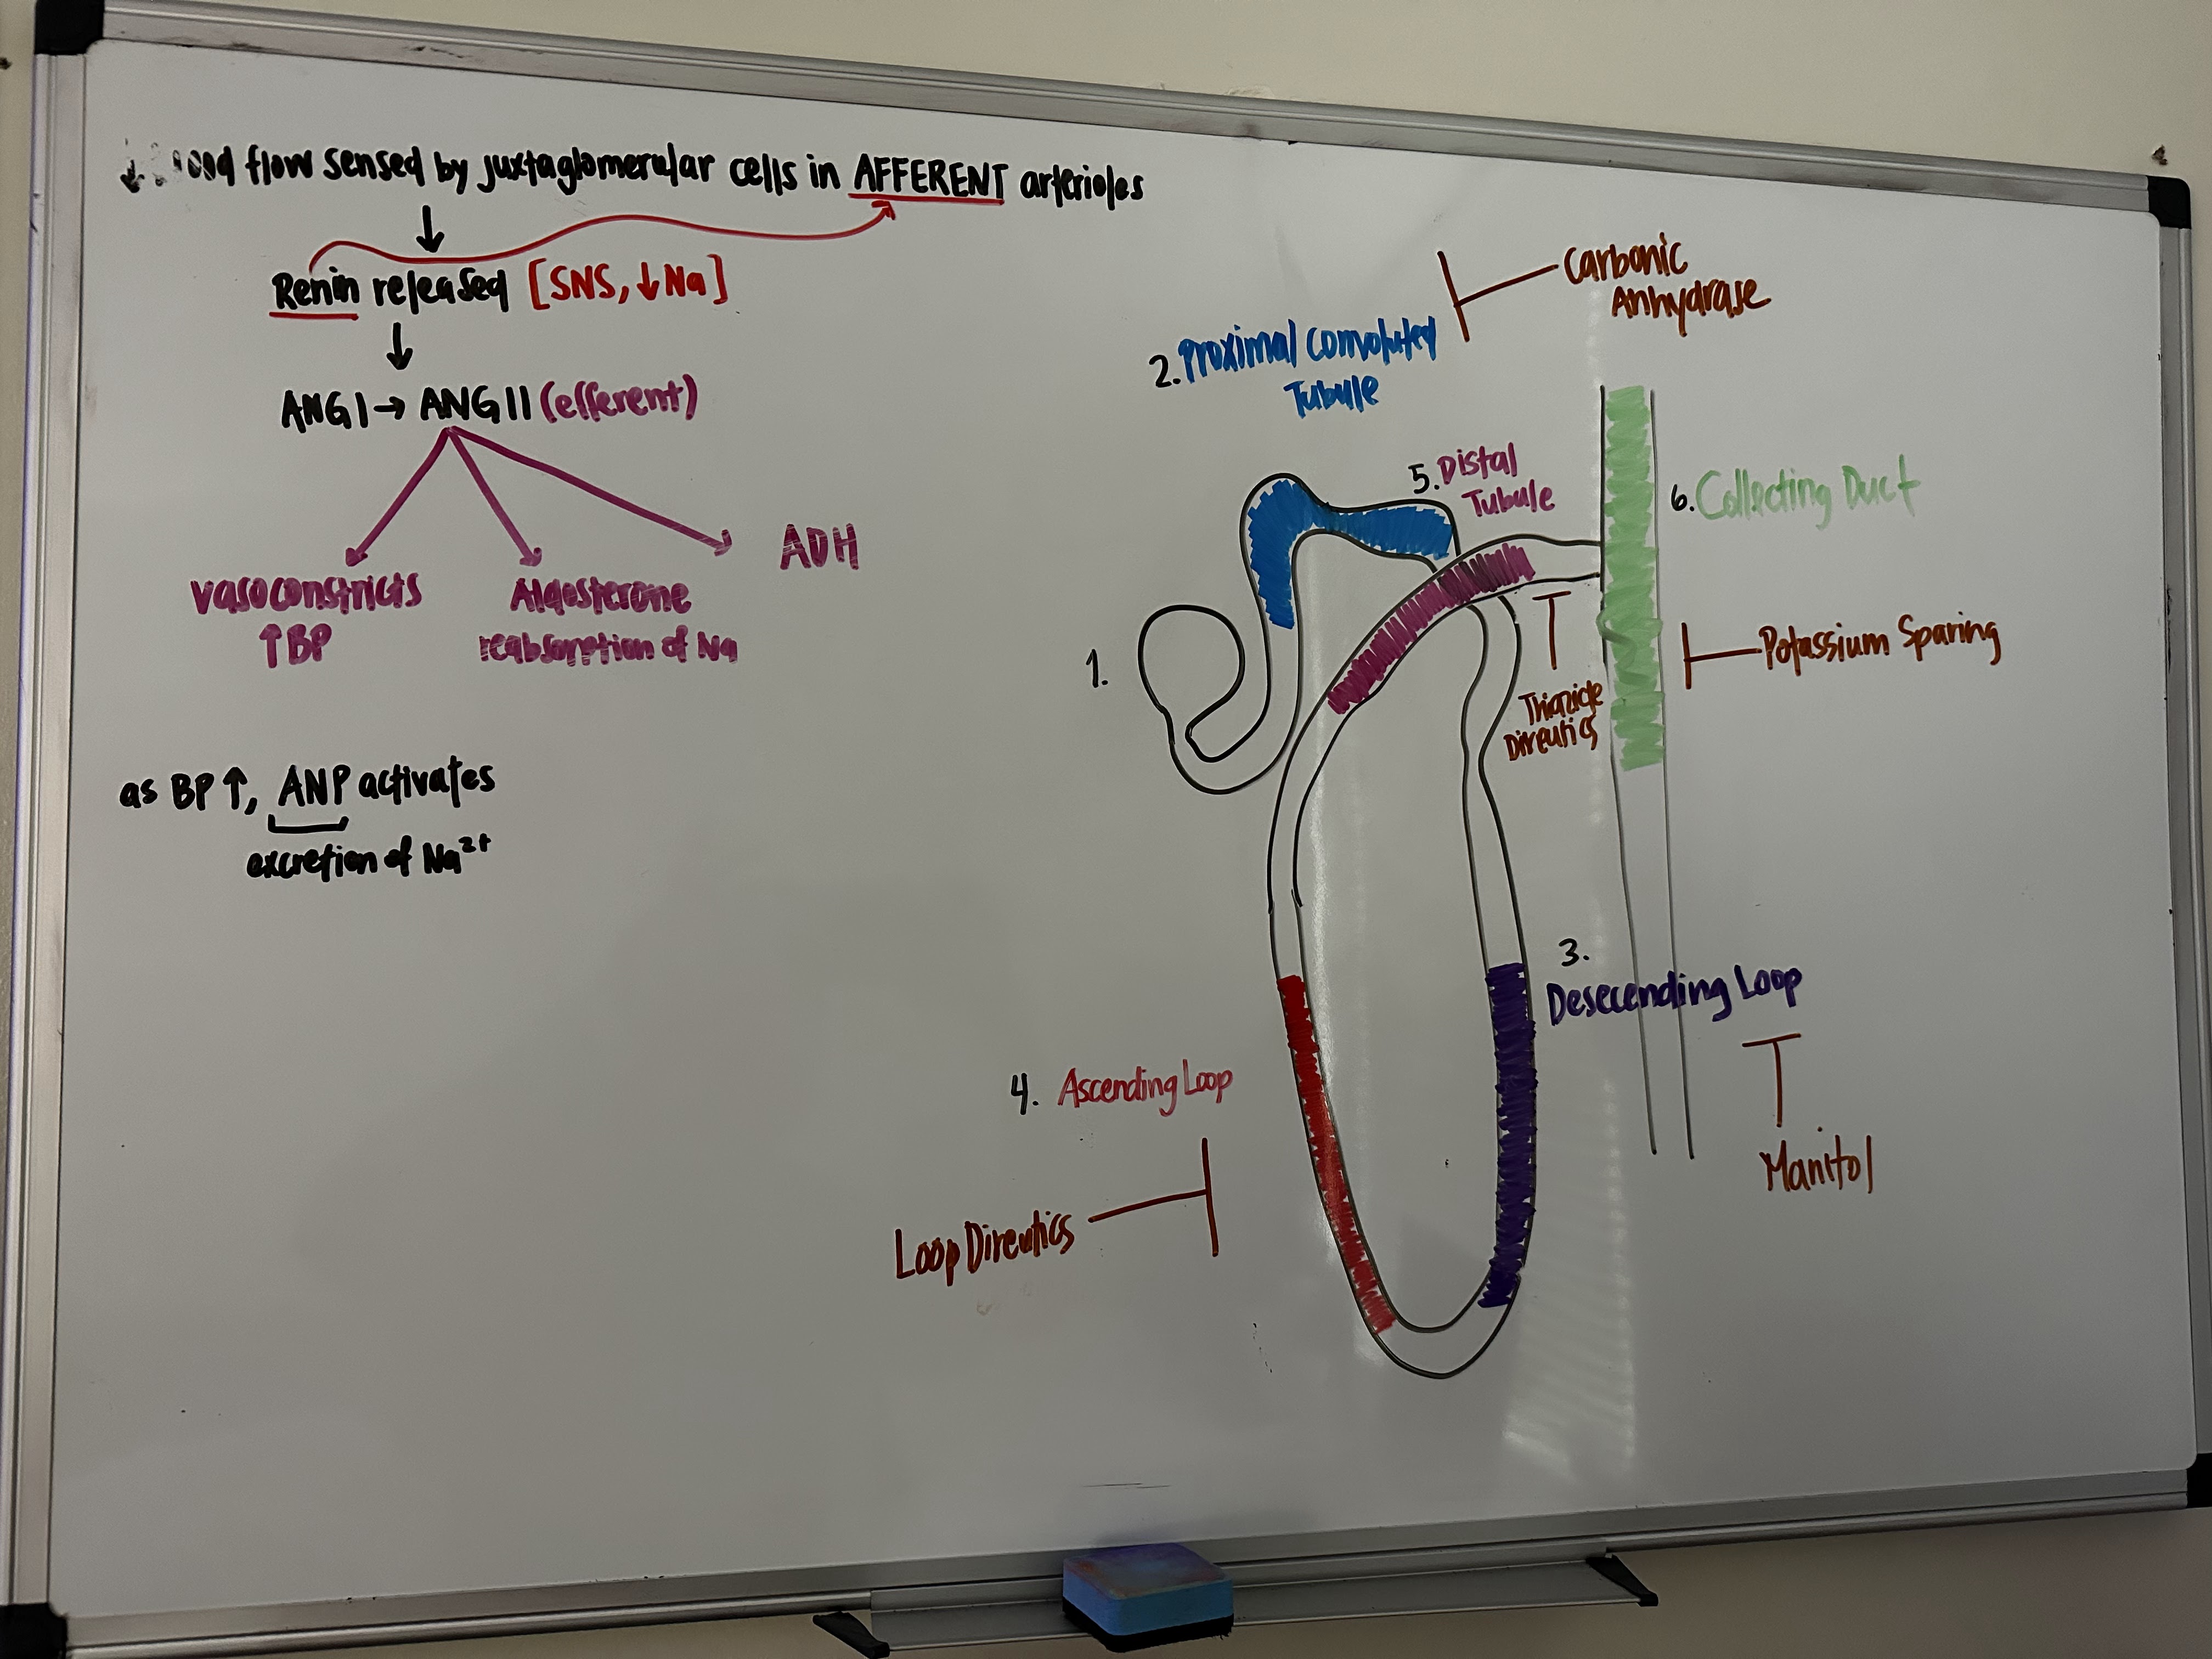 ↓ flow sensed by juxtaglomerular cells in AFFERENT arterioles
↓
Renin released [SNS, ↓Na]
↓
ANG I → ANG II (efferent)
vasoconstricts
↑BP
Aldosterone
reabsorption of Na
ADH
as BP↑, ANP activates
excretion of Na²⁺
Carbonic
Anhydrase
2. Proximal Convoluted
Tubule
5. Distal
Tubule
6. Collecting Duct
1.
Potassium Sparing
Thiazide
Direutics
3.
Desecending Loop
4. Ascending Loop
Manitol
Loop Direutics